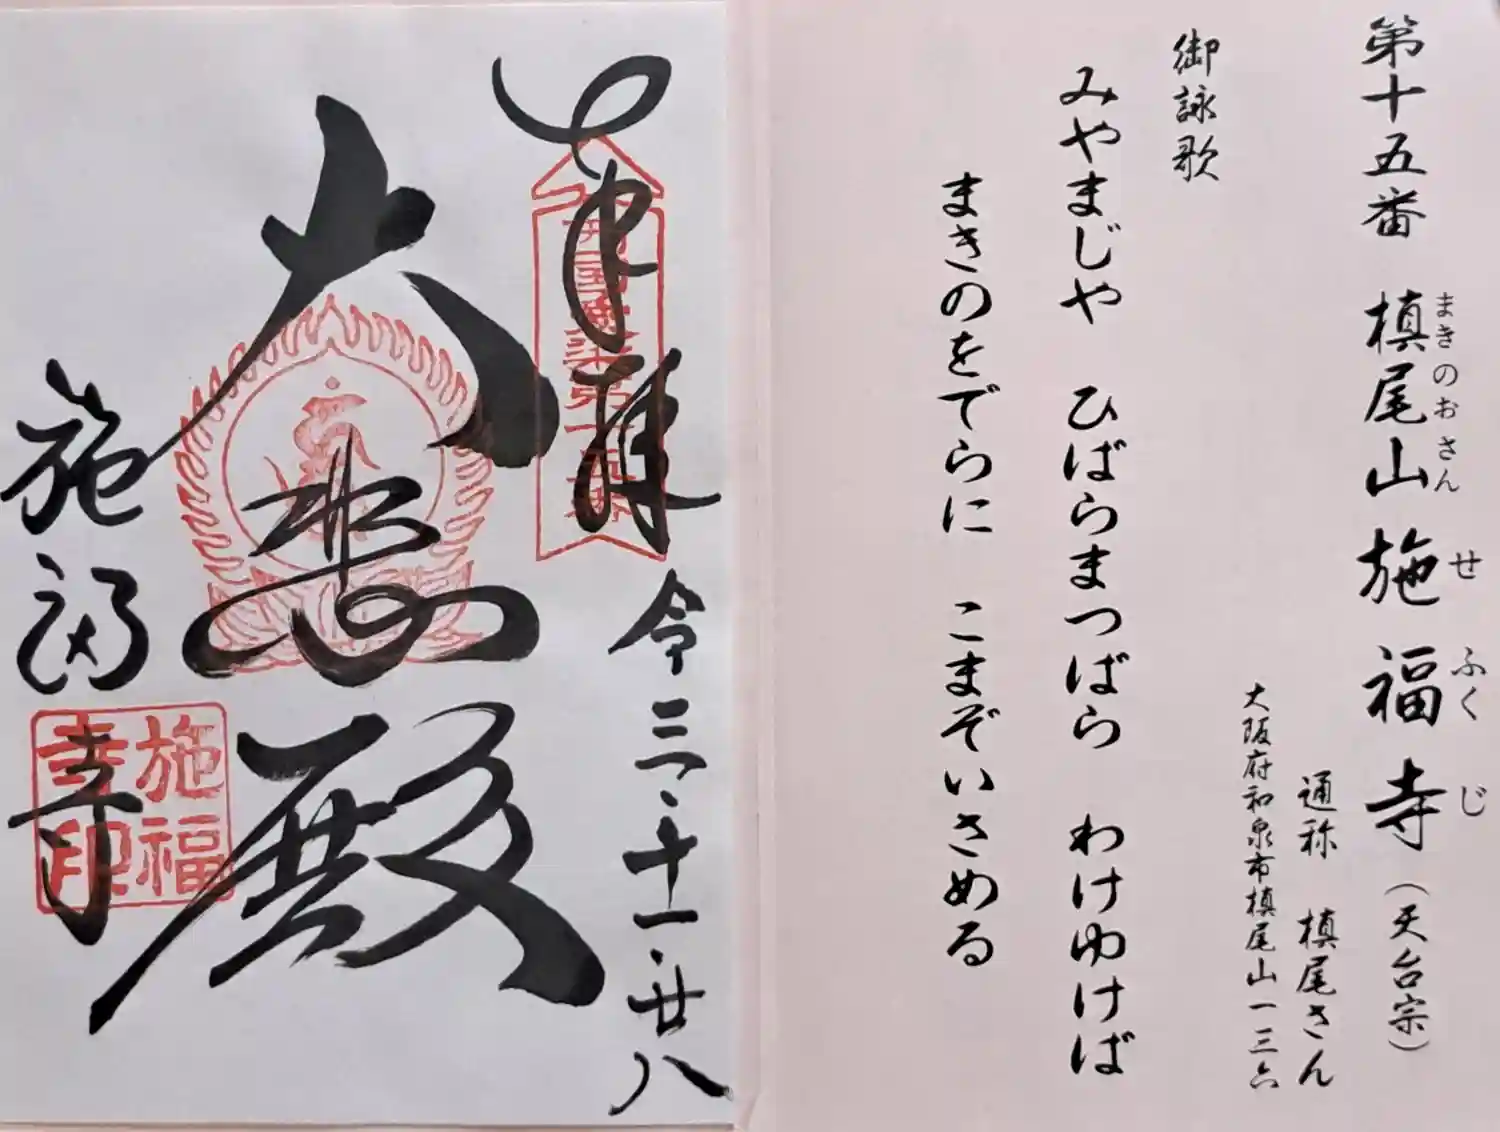 第十五番 槙尾山施福寺（天台宗）
まきのおさん せふくじ
通称 槙尾さん
大阪府和泉市槙尾山一三六
御詠歌
みやまじや ひばらまつばら わけゆけば
まきのをでらに こまぞいさめる
奉拝
令三・十一・廿八
大悲殿
施福寺
施福
寺印